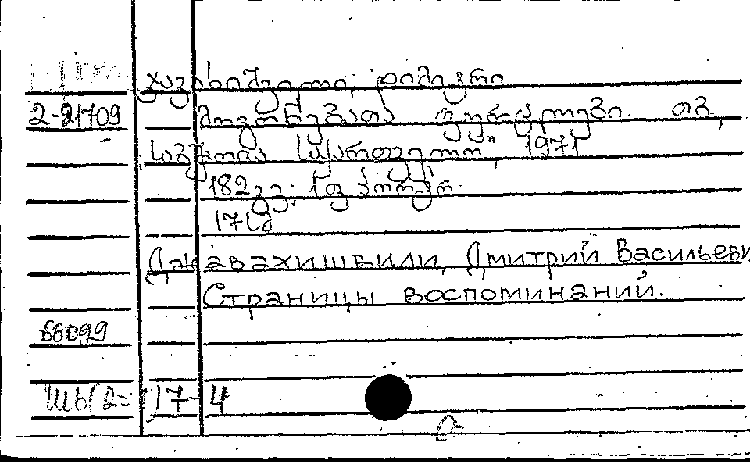 ჯავახიშვილი, დიმიტრი
2-21709 მოგონებათა ფურცლები. თბ.,
საბჭოთა საქართველო", 1971
182 გვ; 1ფ. პორტრ.
Джавахишвили, Дмитрий Васильеви
Страницы воспоминаний.
17 - 4